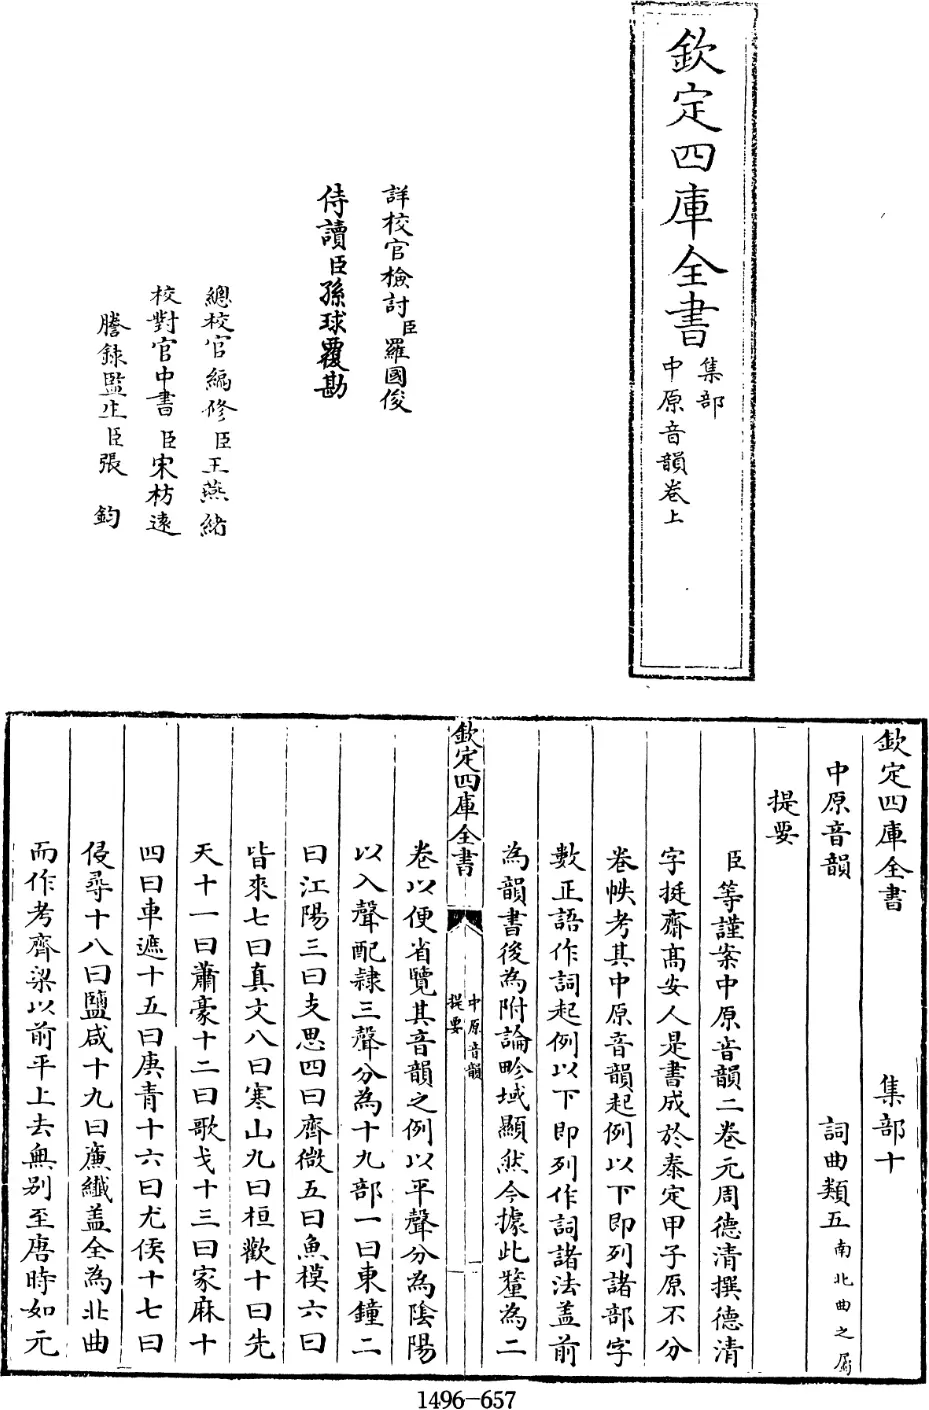 欽定四庫全書
集部
中原音韻卷上
詳校官檢討臣羅國俊
侍讀臣孫球覆勘
總校官編修臣王燕緒
校對官中書臣宋枋遠
謄錄監生臣張鈞
欽定四庫全書 集部十
中原音韻 詞曲類五南北曲之屬
提要
臣等謹案中原音韻二卷元周德清撰德清
字挺齋髙安人是書成於泰定甲子原不分
卷帙考其中原音韻起例以下即列諸部字
數正語作詞起例以下即列作詞諸法蓋前
為韻書後為附論畛域顯然今據此釐為二
欽定四庫全書
中原音韻
提要
一
卷以便省覽其音韻之例以平聲分為陰陽
以入聲配隸三聲分為十九部一曰東鐘二
曰江陽三曰支思四曰齊微五曰魚模六曰
皆來七曰真文八曰寒山九曰桓歡十曰先
天十一曰蕭豪十二曰歌戈十三曰家麻十
四曰車遮十五曰庚青十六曰尤侯十七曰
侵尋十八曰鹽咸十九曰廉纖盖全為北曲
而作考齊梁以前平上去無别至唐時如元
1496-657